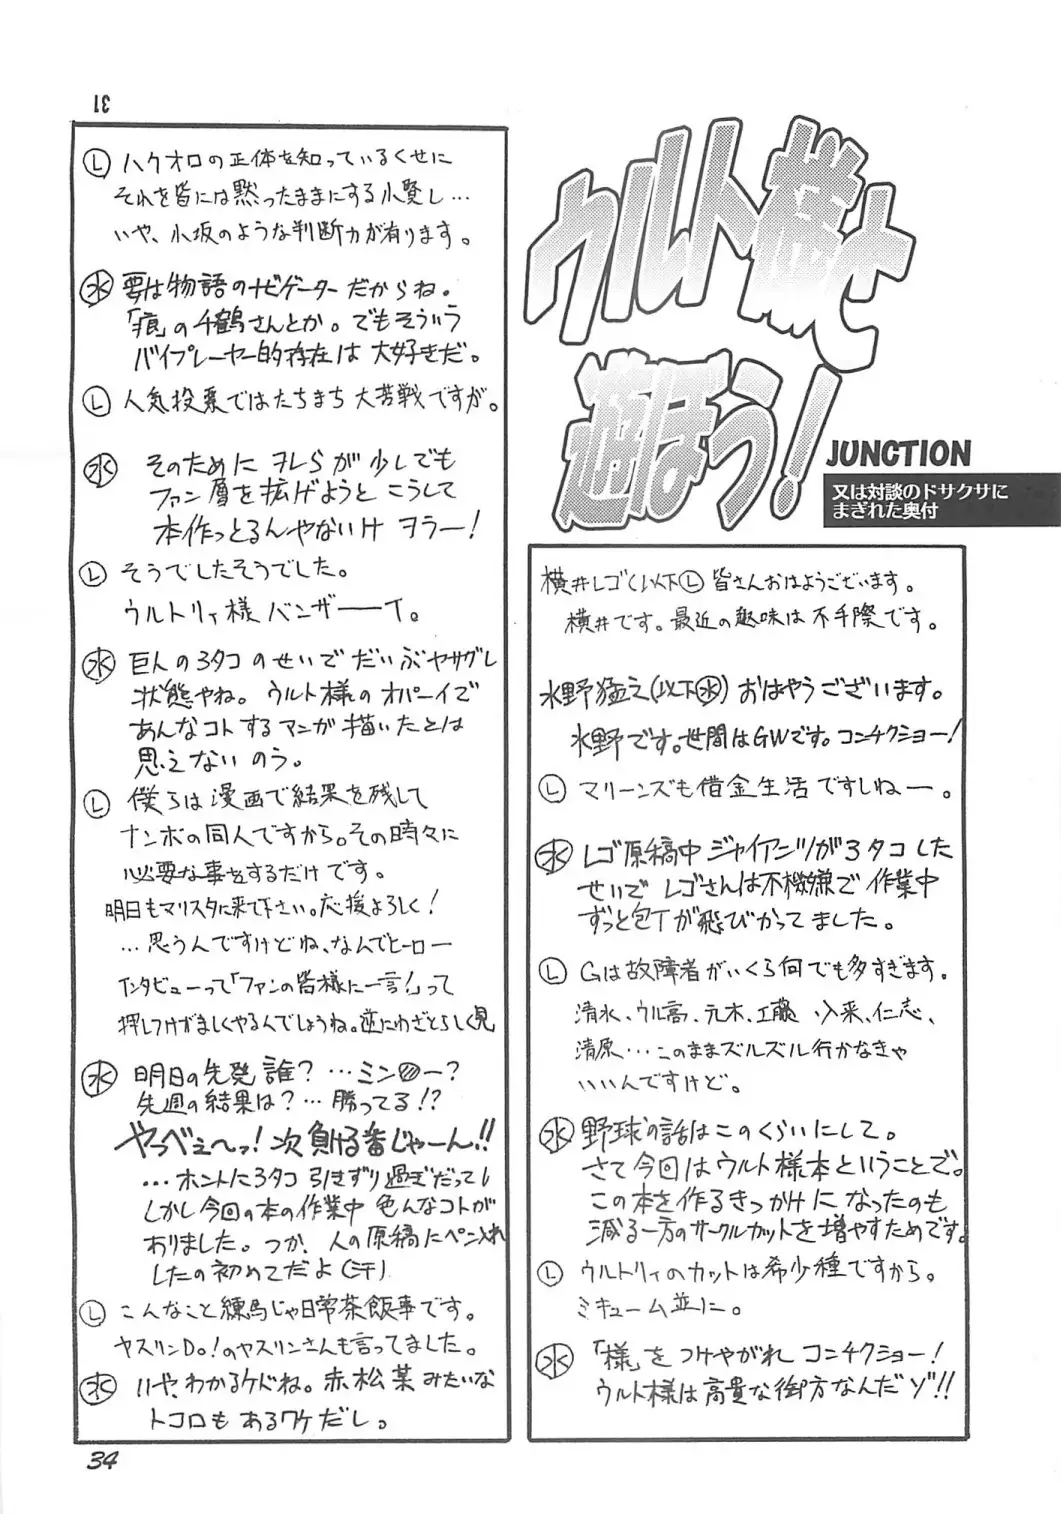 ウルト様と
遊ぼう！
JUNCTION
又は対談のドサクサに
まぎれた奥付
横井レゴ(以下Ⓛ 皆さんおはようございます。
横井です。最近の趣味は不手際です。
水野猛之(以下㊌) おはやうございます。
水野です。世間はGWです。コンチクショー!
Ⓛ マリーンズも借金生活ですしねー。
㊌ レゴ原稿中ジャイアンツが3タコした
せいでレゴさんは不機嫌で作業中
ずっと包丁が飛びかってました。
Ⓛ Gは故障者がいくら何でも多すぎます。
清水、ウル高、元木、工藤 入来、仁志、
清原…このままズルズル行かなきゃ
いいんですけど。
㊌ 野球の話はこのくらいにして。
さて今回はウルト様本ということで。
この本を作るきっかけになったのも
減る一方のサークルカットを増やすためです。
Ⓛ ウルトリィのカットは希少種ですから。
ミキューム並に。
㊌ 「様」をつけやがれコンチクショー!
ウルト様は高貴な御方なんだゾ!!
31
Ⓛ ハクオロの正体を知っているくせに
それを皆には黙ったままにする小賢し…
いや、小坂のような判断力が有ります。
㊌ 要は物語のナビゲーターだからね。
「痕」の千鶴さんとか。でもそういう
バイプレーヤー的存在は大好きだ。
Ⓛ 人気投票ではたちまち大苦戦ですが。
㊌ そのためにヲレらが少しでも
ファン層を拡げようとこうして
本作っとるんやないけヲラー!
Ⓛ そうでしたそうでした。
ウルトリィ様バンザーーイ。
㊌ 巨人の3タコのせいでだいぶヤサグレ
状態やね。ウルト様のオパーイで
あんなコトするマンガ描いたとは
思えないのう。
Ⓛ 僕らは漫画で結果を残して
ナンボの同人ですから。その時々に
必要な事をするだけです。
明日もマリスタに来て下さい。応援よろしく!
…思うんですけどね、なんでヒーロー
インタビューって「ファンの皆様に一言!」って
押しつけがましくやるんでしょうね。逆にわざとらしく見
㊌ 明日の先発誰?…ミン〇ー?
先週の結果は?…勝ってる!?
やっべぇ〜っ!次負ける番じゃーん!!
…ホントに3タコ引きずり過ぎだって!
しかし今回の本の作業中色んなコトが
ありました。つか、人の原稿にペン入れ
したの初めてだよ(汗)
Ⓛ こんなこと練馬じゃ日常茶飯事です。
ヤスリンDo!のヤスリンさんも言ってました。
㊌ いや、わかるケドね。赤松菜みたいな
トコロもあるワケだし。
34